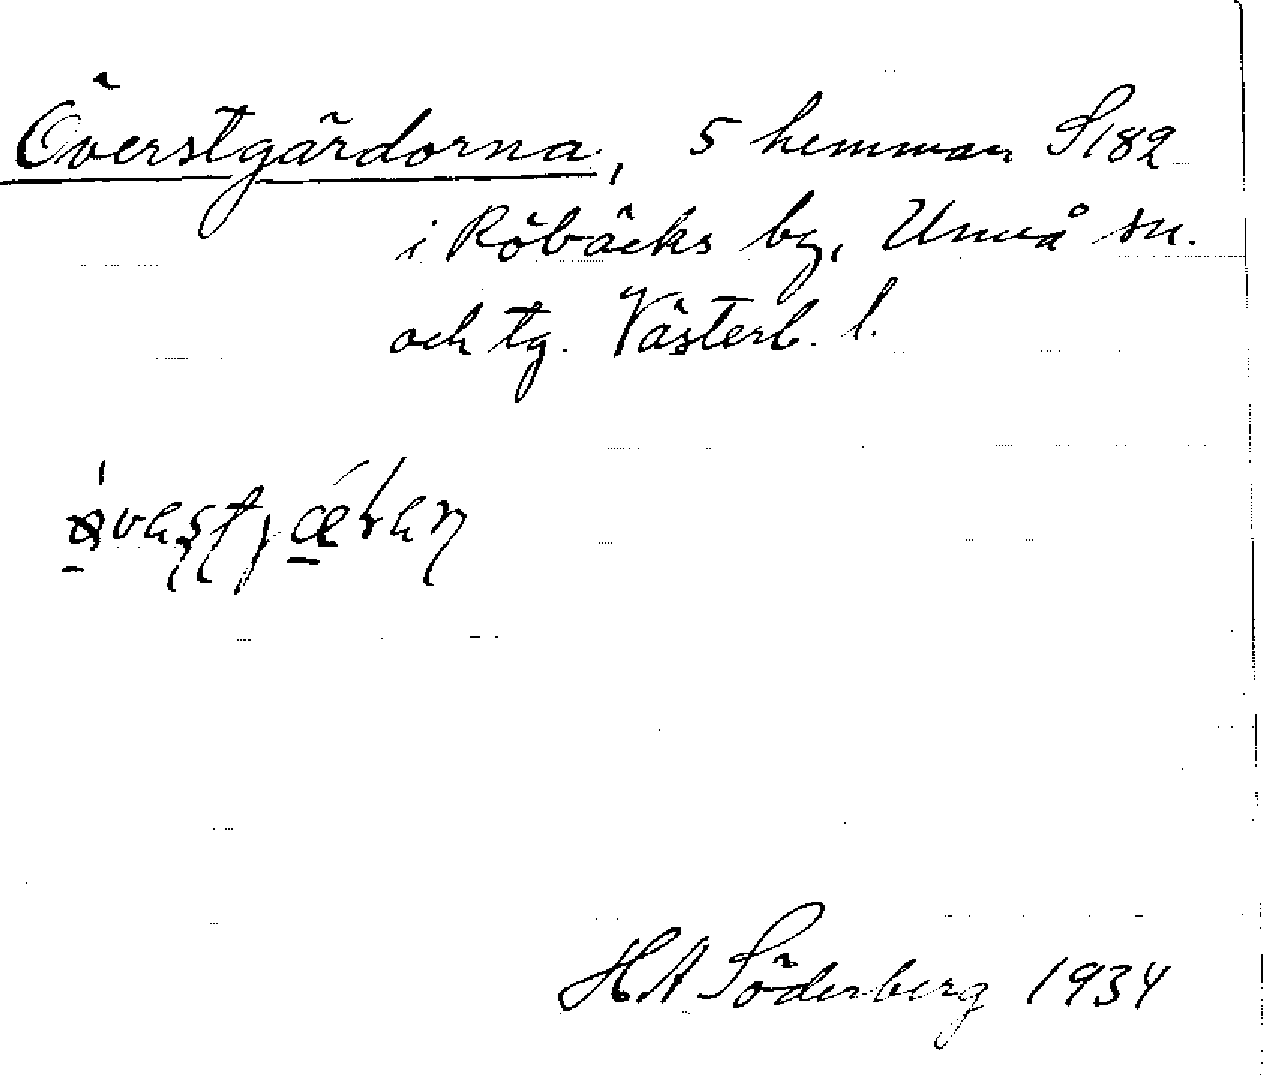 Överstgärdorna, 5 hemman S182
i Röbäcks by, Umeå sn.
och tg. Västerb. l.
H A Söderberg 1934